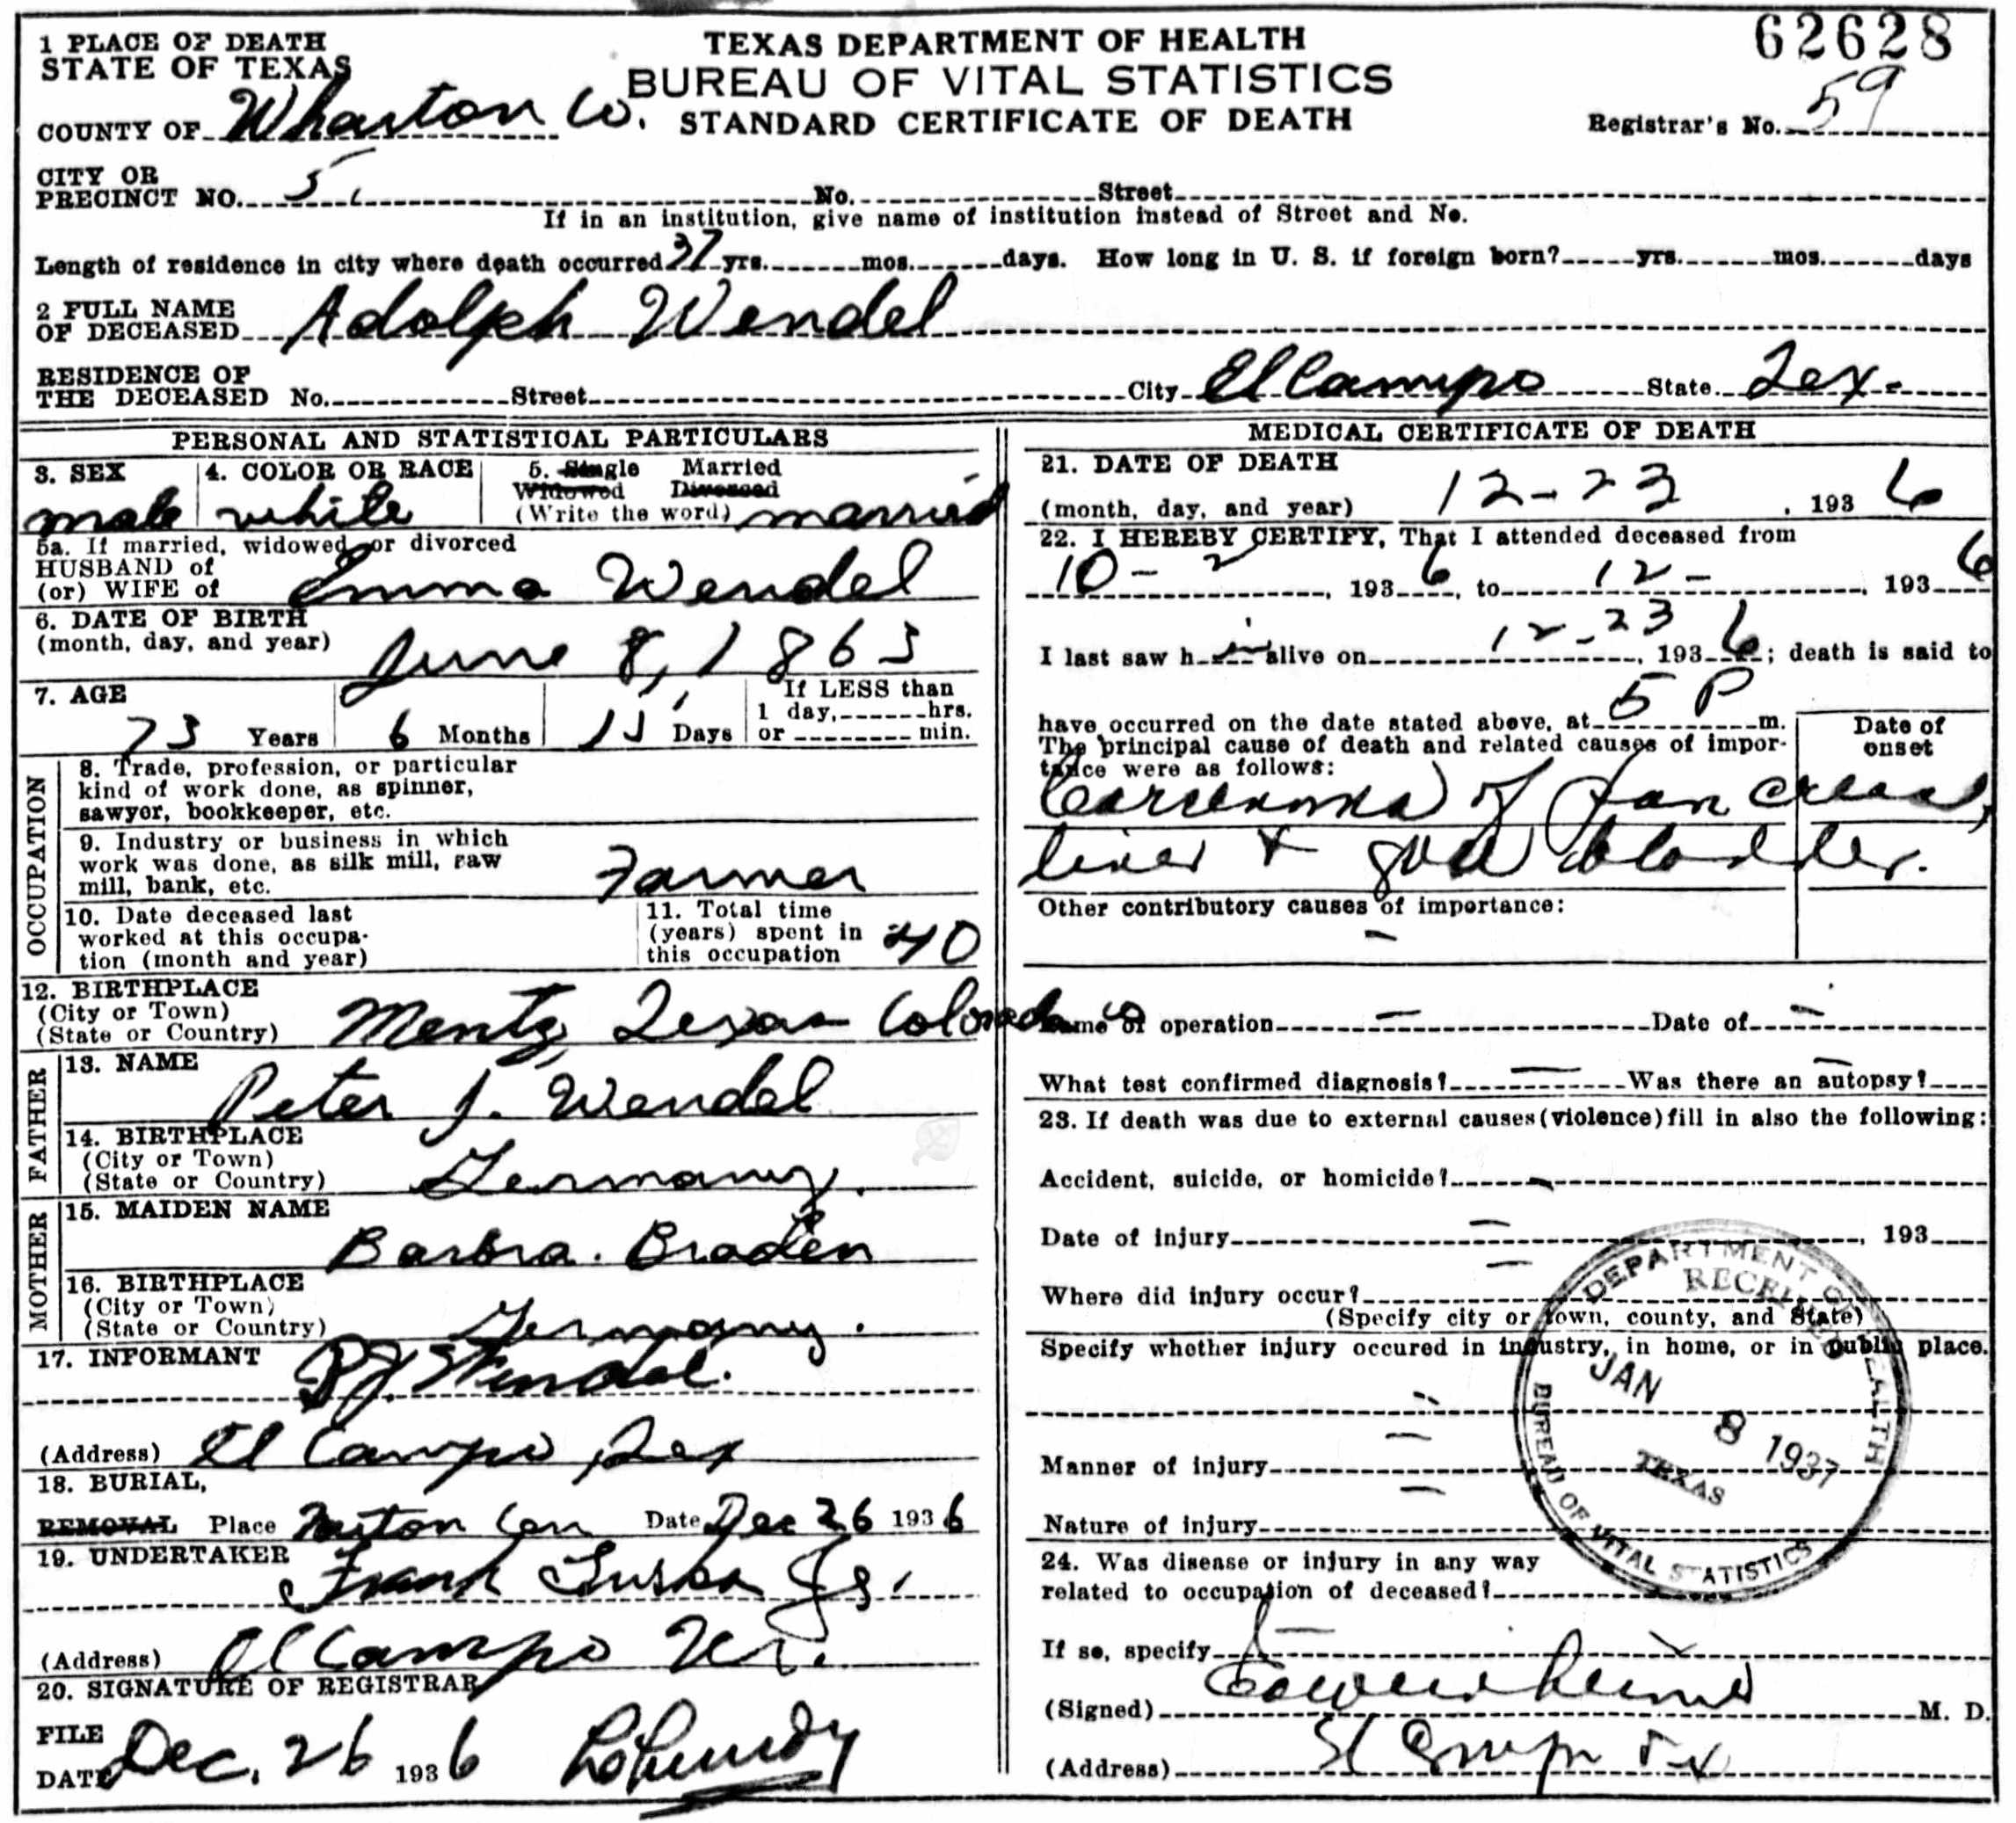 62628
1 PLACE OF DEATH
STATE OF TEXAS
TEXAS DEPARTMENT OF HEALTH
BUREAU OF VITAL STATISTICS
COUNTY OF Wharton Co. STANDARD CERTIFICATE OF DEATH
Registrar's No. 59
CITY OR
PRECINCT NO. 5 No. Street
If in an institution, give name of institution instead of Street and No.
Length of residence in city where death occurred 37 yrs. mos. days. How long in U. S. if foreign born? yrs. mos. days
2 FULL NAME
OF DECEASED Adolph Wendel
RESIDENCE OF
THE DECEASED No. Street City El Campo State Tex.
PERSONAL AND STATISTICAL PARTICULARS
3. SEX
male
4. COLOR OR RACE
white
5. Single Married
Widowed Divorced
(Write the word) married
5a. If married, widowed, or divorced
HUSBAND of
(or) WIFE of Emma Wendel
6. DATE OF BIRTH
(month, day, and year) June 8, 1863
7. AGE
73 Years 6 Months 15 Days
If LESS than
1 day, hrs.
or min.
OCCUPATION
8. Trade, profession, or particular
kind of work done, as spinner,
sawyer, bookkeeper, etc.
9. Industry or business in which
work was done, as silk mill, saw
mill, bank, etc. Farmer
10. Date deceased last
worked at this occupa-
tion (month and year)
11. Total time
(years) spent in
this occupation 40
12. BIRTHPLACE
(City or Town)
(State or Country) Mentz, Texas Colorado Co
FATHER
13. NAME
Peter J. Wendel
14. BIRTHPLACE
(City or Town)
(State or Country) Germany.
MOTHER
15. MAIDEN NAME
Barbra. Braden
16. BIRTHPLACE
(City or Town)
(State or Country) Germany.
17. INFORMANT
P.J. Wendel.
(Address) El Campo, Tex
18. BURIAL,
REMOVAL Place Cem Date Dec 26 1936
19. UNDERTAKER
Frank Jr.
(Address) El Campo
20. SIGNATURE OF REGISTRAR
FILE
DATE Dec. 26 1936
MEDICAL CERTIFICATE OF DEATH
21. DATE OF DEATH
(month, day, and year) 12-23, 1936
22. I HEREBY CERTIFY, That I attended deceased from
10-2, 1936, to 12-, 1936
I last saw h alive on 12-23, 1936; death is said to
have occurred on the date stated above, at 5 P m.
The principal cause of death and related causes of impor-
tance were as follows:
Date of
onset
Carcinoma of Pancreas,
liver & gall bladder.
Other contributory causes of importance:
–
Name of operation – Date of –
What test confirmed diagnosis? – Was there an autopsy? –
23. If death was due to external causes (violence) fill in also the following:
Accident, suicide, or homicide? –
Date of injury –, 193
Where did injury occur? –
(Specify city or town, county, and State)
Specify whether injury occured in industry, in home, or in public place.
–
Manner of injury –
Nature of injury –
24. Was disease or injury in any way
related to occupation of deceased?
If so, specify –
(Signed) M. D.
(Address) El Campo Tx
DEPARTMENT OF HEALTH
RECEIVED
JAN 8 1937
TEXAS
BUREAU OF VITAL STATISTICS